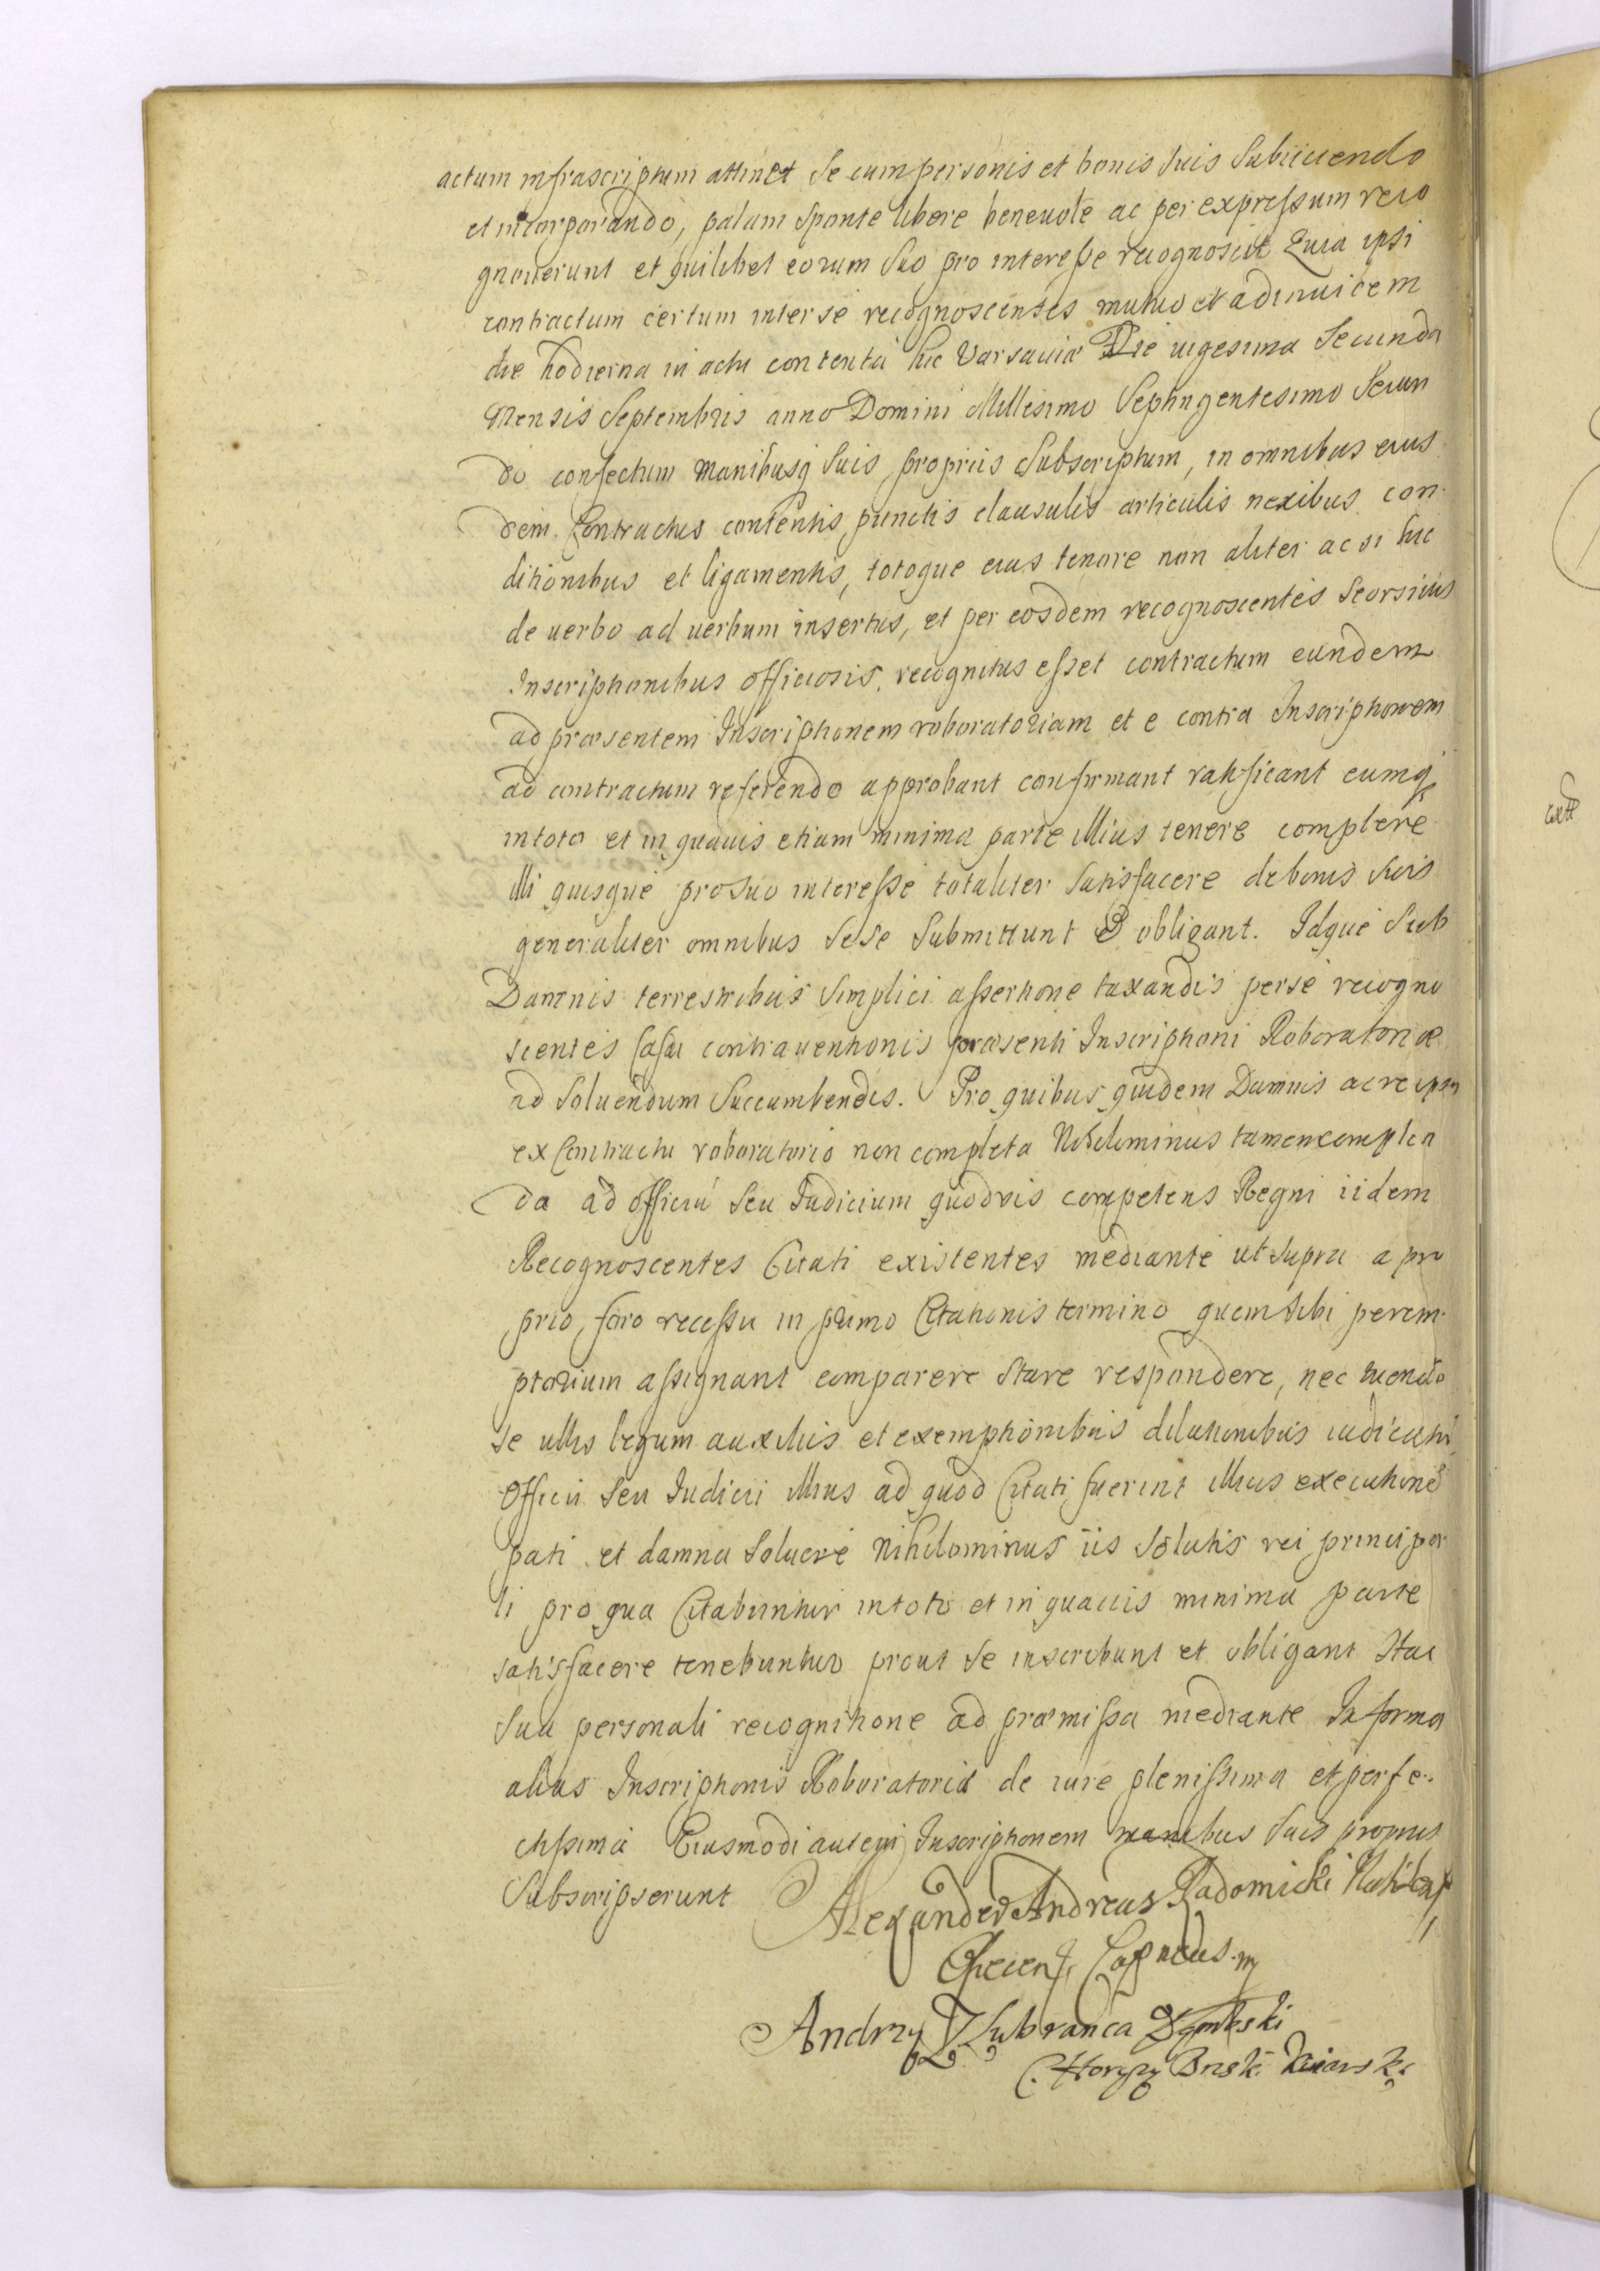 actum infrascriptum attinet Se cum personis et bonis suis Subijciendo
et incorporando, palam sponte libere benevole ac per expressum reco
gnoverunt et quilibet eorum Suo pro interesse recognoscit Quia ipsi
contractum certum inter se recognoscentes mutuo et adinvicem
die hodierna in actu contenta hic Varsaviæ Die vigesima Secunda
Mensis Septembris anno Domini Millesimo Septingentesimo Secun
do confectum manibusq suis proprijs Subscriptum, in omnibus eius
dem Contractus contentis punctis clausulis articulis nexibus con
ditionibus et ligamentis, totoque eius tenore non aliter ac si hic
de verbo ad verbum insertus, et per eosdem recognoscentes Seorsivis
Inscriptionibus officiosis, recognitus esset contractum eundem
ad præsentem Inscriptionem roboratoriam et e contra Inscriptionem
ad contractum referendo approbant confirmant ratificant eumq
in toto et in quavis etiam minima parte illius tenere complere
illi quisque pro suo interesse totaliter Satisfacere de bonis suis
generaliter omnibus Sese Submittunt & obligant. Idque Sub
Damnis terrestribus Simplici assertione taxandis per se recogno
scentes casu contraventionis præsenti Inscriptioni Roboratoriæ
ad Soluendum Succumbendis. Pro quibus quidem Damnis ac re ipsa
ex Contractu roboratorio non completa Nihilominus tamen complen
da ad officiu seu Iudicium quodvis competens Regni iidem
Recognoscentes Citati existentes mediante ut supra a pro
prio foro recessu in primo Citationis termino quem sibi perem
ptorium assignant comparere stare respondere, nec tuendo
se ullis legum auxilijs et exemptionibus dilationibus iudicatu
Officii Seu Iudicii illius ad quod Citati fuerint illius executione
pati et damna Soluere Nihilominus iis Solutis rei principa
li pro qua Citabuntur in toto et in quavis minima parte
satisfacere tenebuntur prout Se inscribunt et obligant Hac
Sua personali recognitione ad præmissa mediante In forma
alias Inscriptionis Roboratoriæ de iure plenissima et perfe
ctissima Eiusmodi autem Inscriptionem manibus suis proprijs
Subscripserunt
Alexander Andreas Radomicki
Andrzy Z Lubranca Dąmbski
Chorązy Brsk: Kuiawski